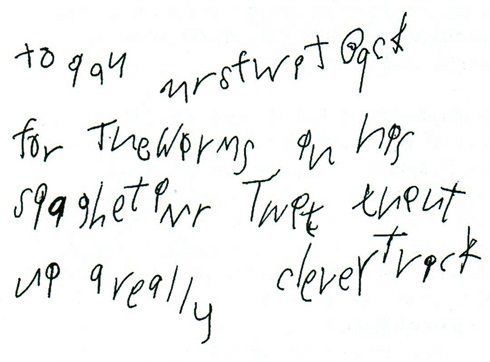 to pay mrstwit Back
for TheWorms in his
spaghetimr Twit thout
up areally cleverTrick